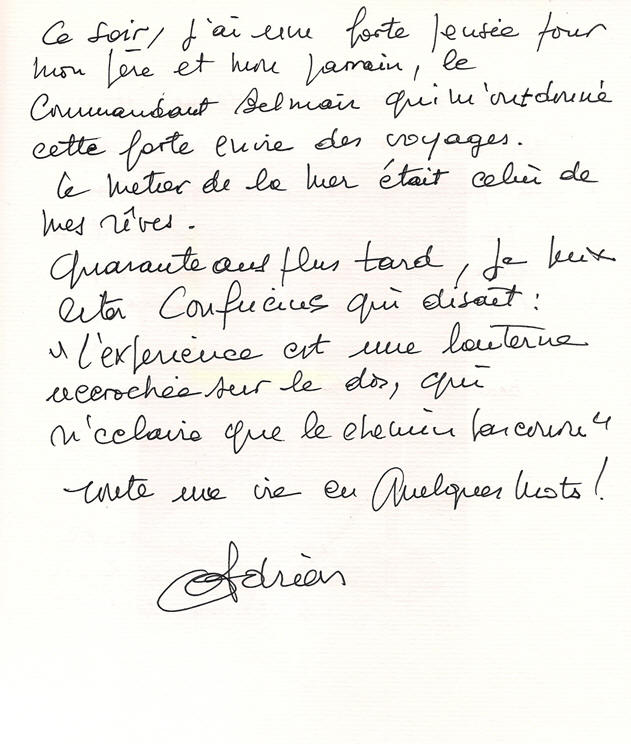 Ce soir, j'ai une forte pensée pour
mon père et mon parrain, le
Commandant Delmain qui m'ont donné
cette forte envie des voyages.
Le metier de la mer était celui de
mes rêves.
Quarante ans plus tard, je peux
citer Confucius qui disait :
"l'expérience est une lanterne
accrochée sur le dos, qui
n'eclaire que le chemin parcouru"
toute une vie en quelques mots !
Adrien